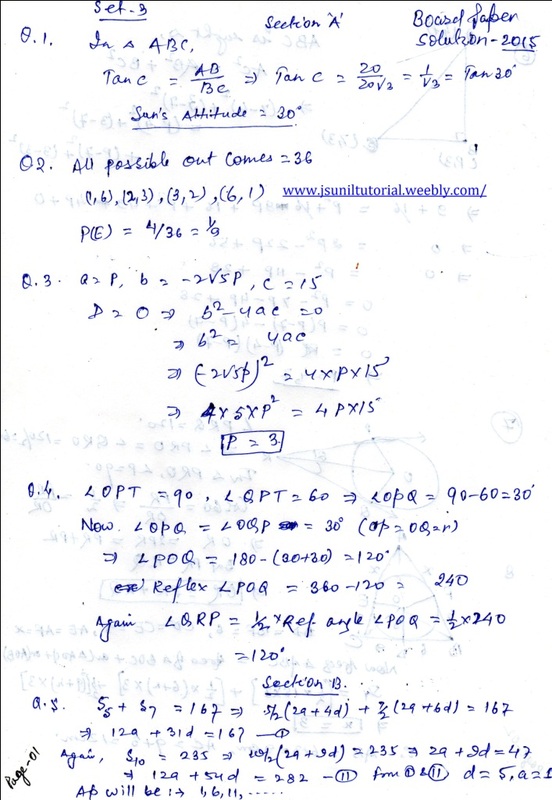 Set-3
Section 'A'
Board Paper
Solution-2015
Q.1. In △ ABC,
Tan C = AB/BC ⇒ Tan C = 20/20√3 = 1/√3 = Tan 30°
Sun's Attitude = 30°
Q2. All possible out comes = 36
(1,6), (2,3), (3,2), (6,1)
www.jsuniltutorial.weebly.com/
P(E) = 4/36 = 1/9
Q.3. a=P, b = -2√5P, c = 15
D = 0 ⇒ b²-4ac = 0
⇒ b² = 4ac
⇒ (-2√5p)² = 4×P×15
⇒ 4×5×P² = 4P×15
P = 3
Q.4. ∠OPT = 90, ∠QPT = 60 ⇒ ∠OPQ = 90-60 = 30°
Now. ∠OPQ = ∠OQP = 30° (OP=OQ=r)
⇒ ∠POQ = 180-(30+30) = 120°
Reflex ∠POQ = 360-120 = 240
Again ∠QRP = 1/2 × Ref angle ∠POQ = 1/2 × 240
= 120°
Section B.
Q.5. S5 + S7 = 167 ⇒ 5/2(2a+4d) + 7/2(2a+6d) = 167
⇒ 12a + 31d = 167 — (I)
Again, S10 = 235 ⇒ 10/2(2a+9d) = 235 ⇒ 2a+9d = 47
⇒ 12a + 54d = 282 — (II) from (I) & (II) d=5, a=1
AP will be :→ 1, 6, 11, ......
Page-01